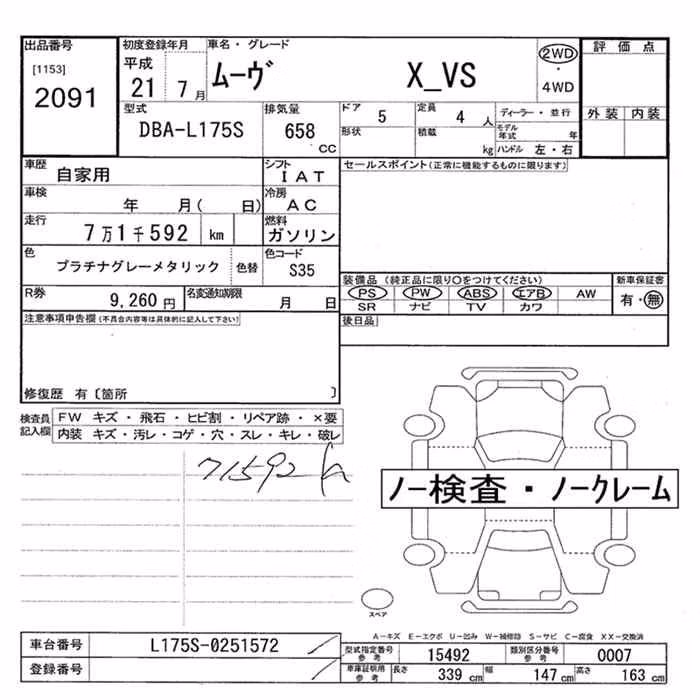 出品番号 初度登録年月 車名・グレード 評価点
[1153] 2091
平成 21 7月 ムーヴ X_VS 2WD・4WD
外装 内装
型式 DBA-L175S 排気量 658 CC ドア 5 定員 4 人 ディーラー・並行
形状 積載 kg モデル年式 年 ハンドル 左・右
車歴 自家用 シフト IAT セールスポイント(正常に機能するものに限ります)
車検 年 月( 日) 冷房 AC
走行 7万1千592 km 燃料 ガソリン
色 プラチナグレーメタリック 色替 色コード S35
装備品 (純正品に限り○をつけてください) 新車保証書
PS PW ABS エアB AW 有・無
SR ナビ TV カワ
R券 9,260円 名変通知期限 月 日
注意事項申告欄(不具合内容等は具体的に記入して下さい) 後日品
修復歴 有〔箇所 〕
検査員記入欄 FW キズ・飛石・ヒビ割・リペア跡・×要
内装 キズ・汚レ・コゲ・穴・スレ・キレ・破レ
71592
ノー検査・ノークレーム
スペア
A-キズ E-エクボ U-凹み W-補修跡 S-サビ C-腐食 XX-交換済
車台番号 L175S-0251572
登録番号
型式指定番号 参考 15492 類別区分番号 参考 0007
車庫証明用 参考 長さ 339 cm 幅 147 cm 高さ 163 cm